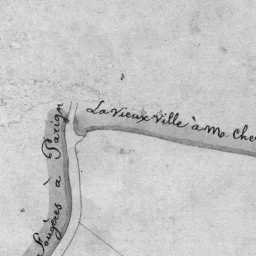 La Vieux Ville à Mo Che
Fougères à Parign